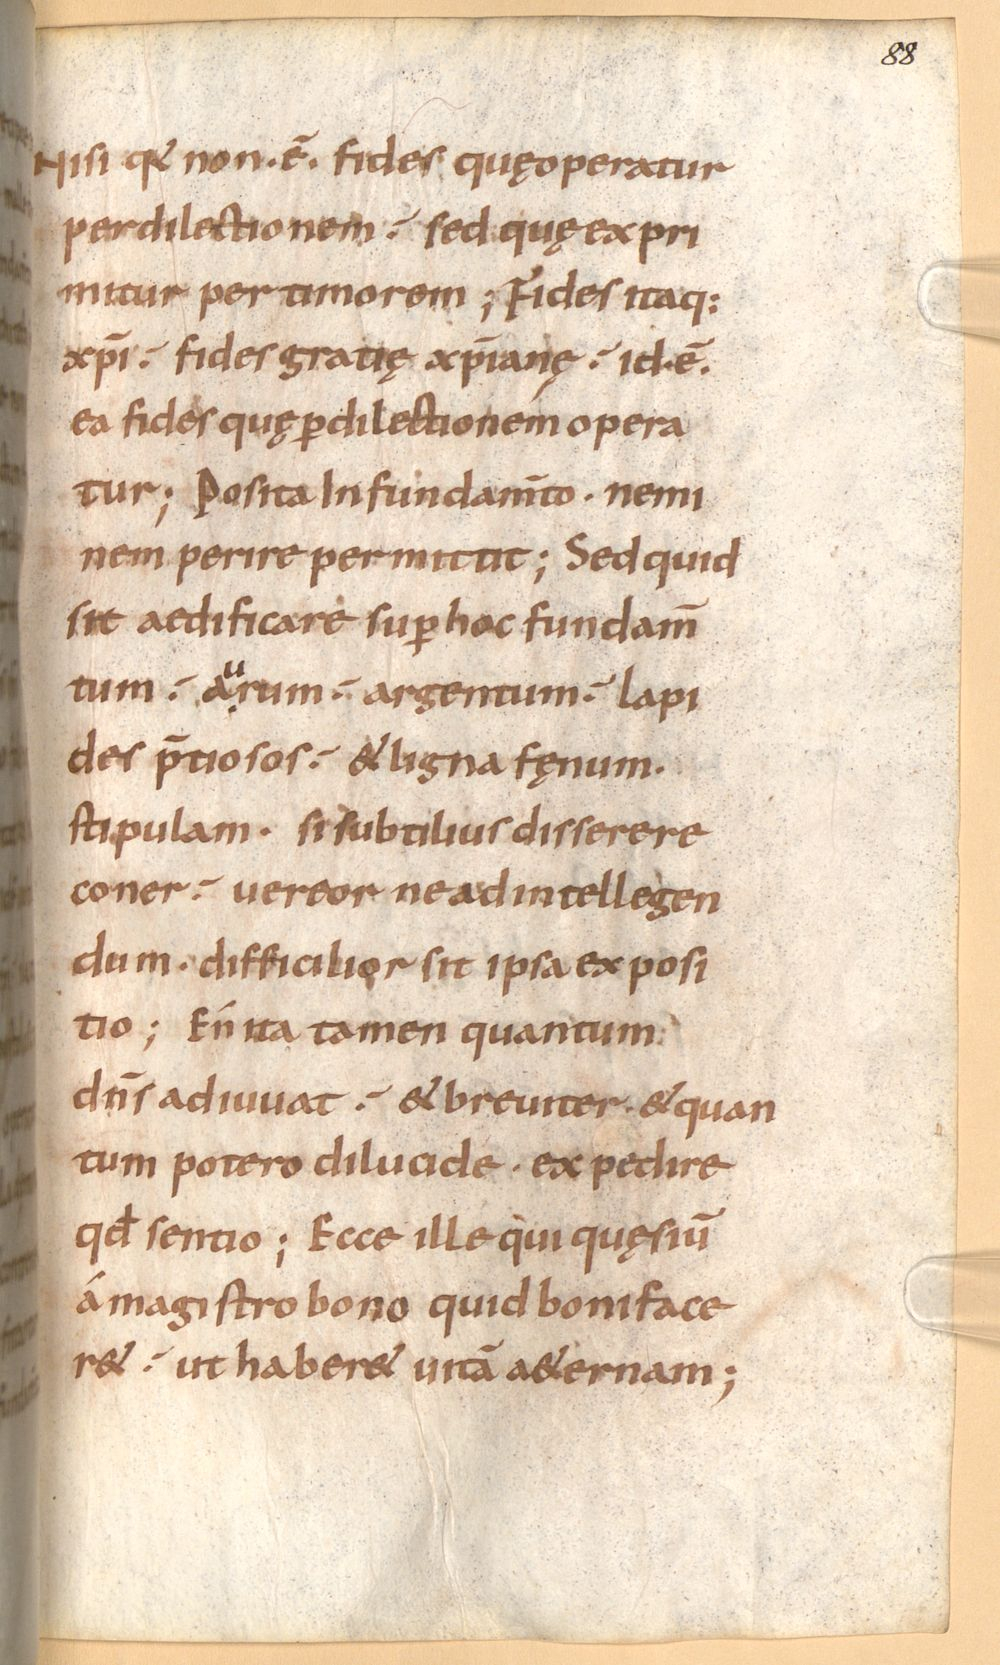 88
Nisi q& non·ē· fides quęoperatur
perdilectionem·́ sed quęexpri
mitur per timorem ; Fides itaq:
xp̄i·́ fides gratię xp̄ianę·́ id·ē·
ea fides quęꝑdilectionem opera
tur; Posita In fundam̄to · nemi
nem perire permittit ; Sed quid
sit aedificare suꝑ hoc fundam̄
tum·́ aurum·́ argentum·́ lapi
des p̄tiosos·́ & ligna fęnum·
stipulam · si subtilius disserere
coner·́ uereor ne ad intellegen
dum · difficilior sit ipsa exposi
tio ; Eń ita tamen quantum
dn̄s adiuuat·́ & breuiter · & quan
tum potero dilucide · expedire
qđ sentio ; Ecce ille qui quęsiū
á magistro bono quid boni face
r&·́ ut haber& uitā a&ernam ;